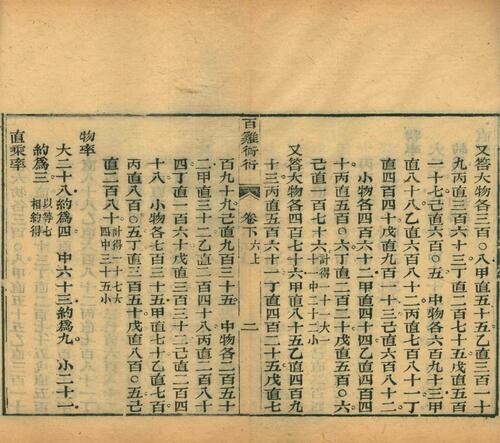 又答大物各三百○八甲直五十五乙直三百一十
九丙直三百六十三丁直二百七十五戊直五百
一十七己直六百○五　中物各二百九十三甲
直八十八乙直六百八十二丙直七百八十一丁
直四百四十戊直九百一十三己直六百八十二
十丙直五百○六丁直二百二十戊直四百六十
己直一百七十六計得一十一大一十中二十二小
又答大物各四百七十六甲直八十五乙直四百
十三丙直五百六十一丁直四百二十五戊直七
百九十九己直九百三十五　中物各二百五十
二甲直三十二乙直二百四十八丙直二百八十
四丁直一百六十戊直三百三十二己直二百四
十八　小物各七百三十五甲直七十乙直七百
丙直八百○五丁直三百五十戊直八百○五己
直二百八十計得一十七大四中三十五小
物率
大二十八約為四　中六十三約為九　小二十一
約為三以等七相約得
直乘率
百雞術衍
卷下六上
二